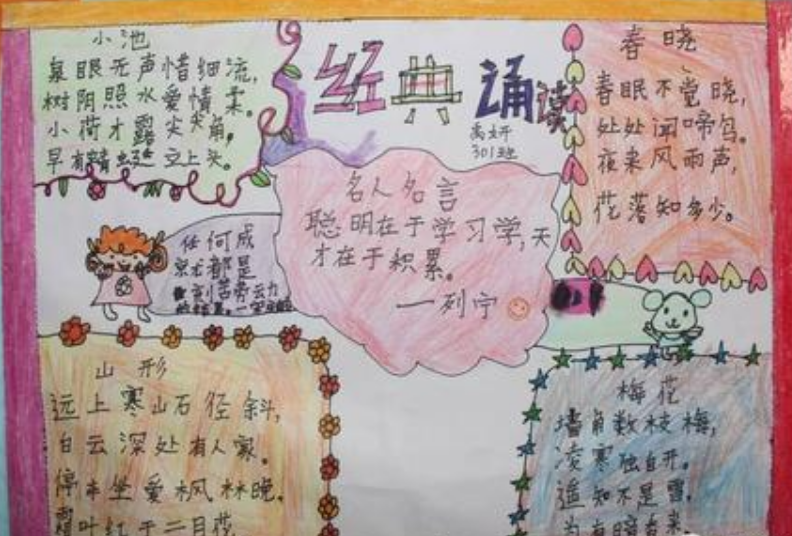 小池
泉眼无声惜细流，
树阴照水爱情柔。
小荷才露尖尖角，
早有蜻 立上头。
经典诵读
301班
春晓
春眠不觉晓，
处处闻啼鸟。
夜来风雨声，
花落知多少。
名人名言
聪明在于学习学，天
才在于积累。
—列宁
任何成
就都是
刻苦劳动
山形
远上寒山石径斜，
白云深处有人家。
停车坐爱枫林晚。
霜叶红于二月花
梅花
墙角数枝梅，
凌寒独自开。
遥知不是雪，
为有暗香来